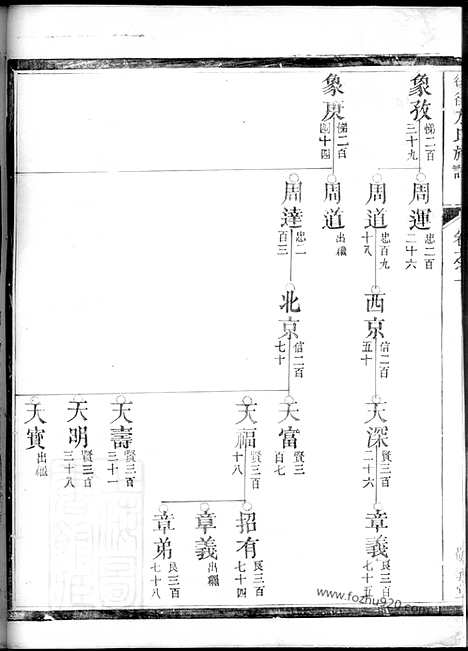 象孜
悌二百
三十九
象庚
悌二百
四十四
周運
忠二百
二十六
周道
忠百九
十八
周道
出繼
周達
忠二
百三
西京
信二百
五十
北京
信二百
七十
天深
賢三百
二十六
天富
賢三
百七
天福
賢三百
十八
天壽
賢三百
三十一
天明
賢三百
三十八
天寶
出繼
章義
良三百
七十五
招有
良三百
七十四
章義
出繼
章弟
良三百
七十八
www.fozhu920.com